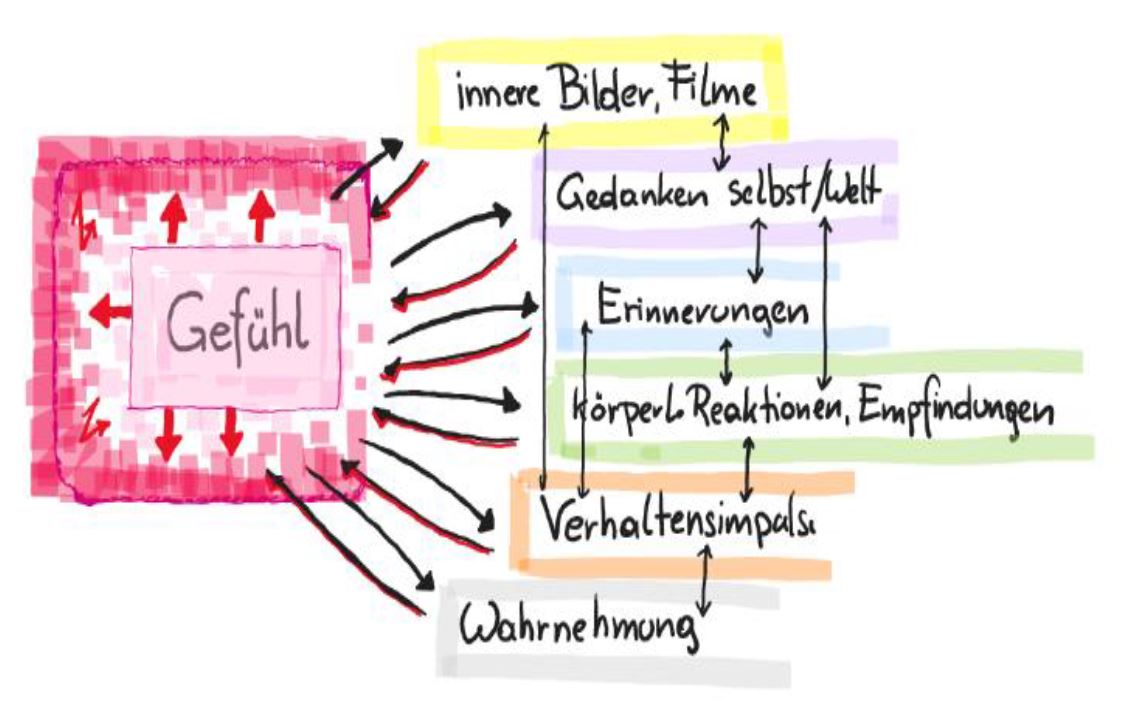 innere Bilder, Filme
Gedanken selbst/Welt
Erinnerungen
Gefühl
körperl. Reaktionen, Empfindungen
Verhaltensimpulse
Wahrnehmung